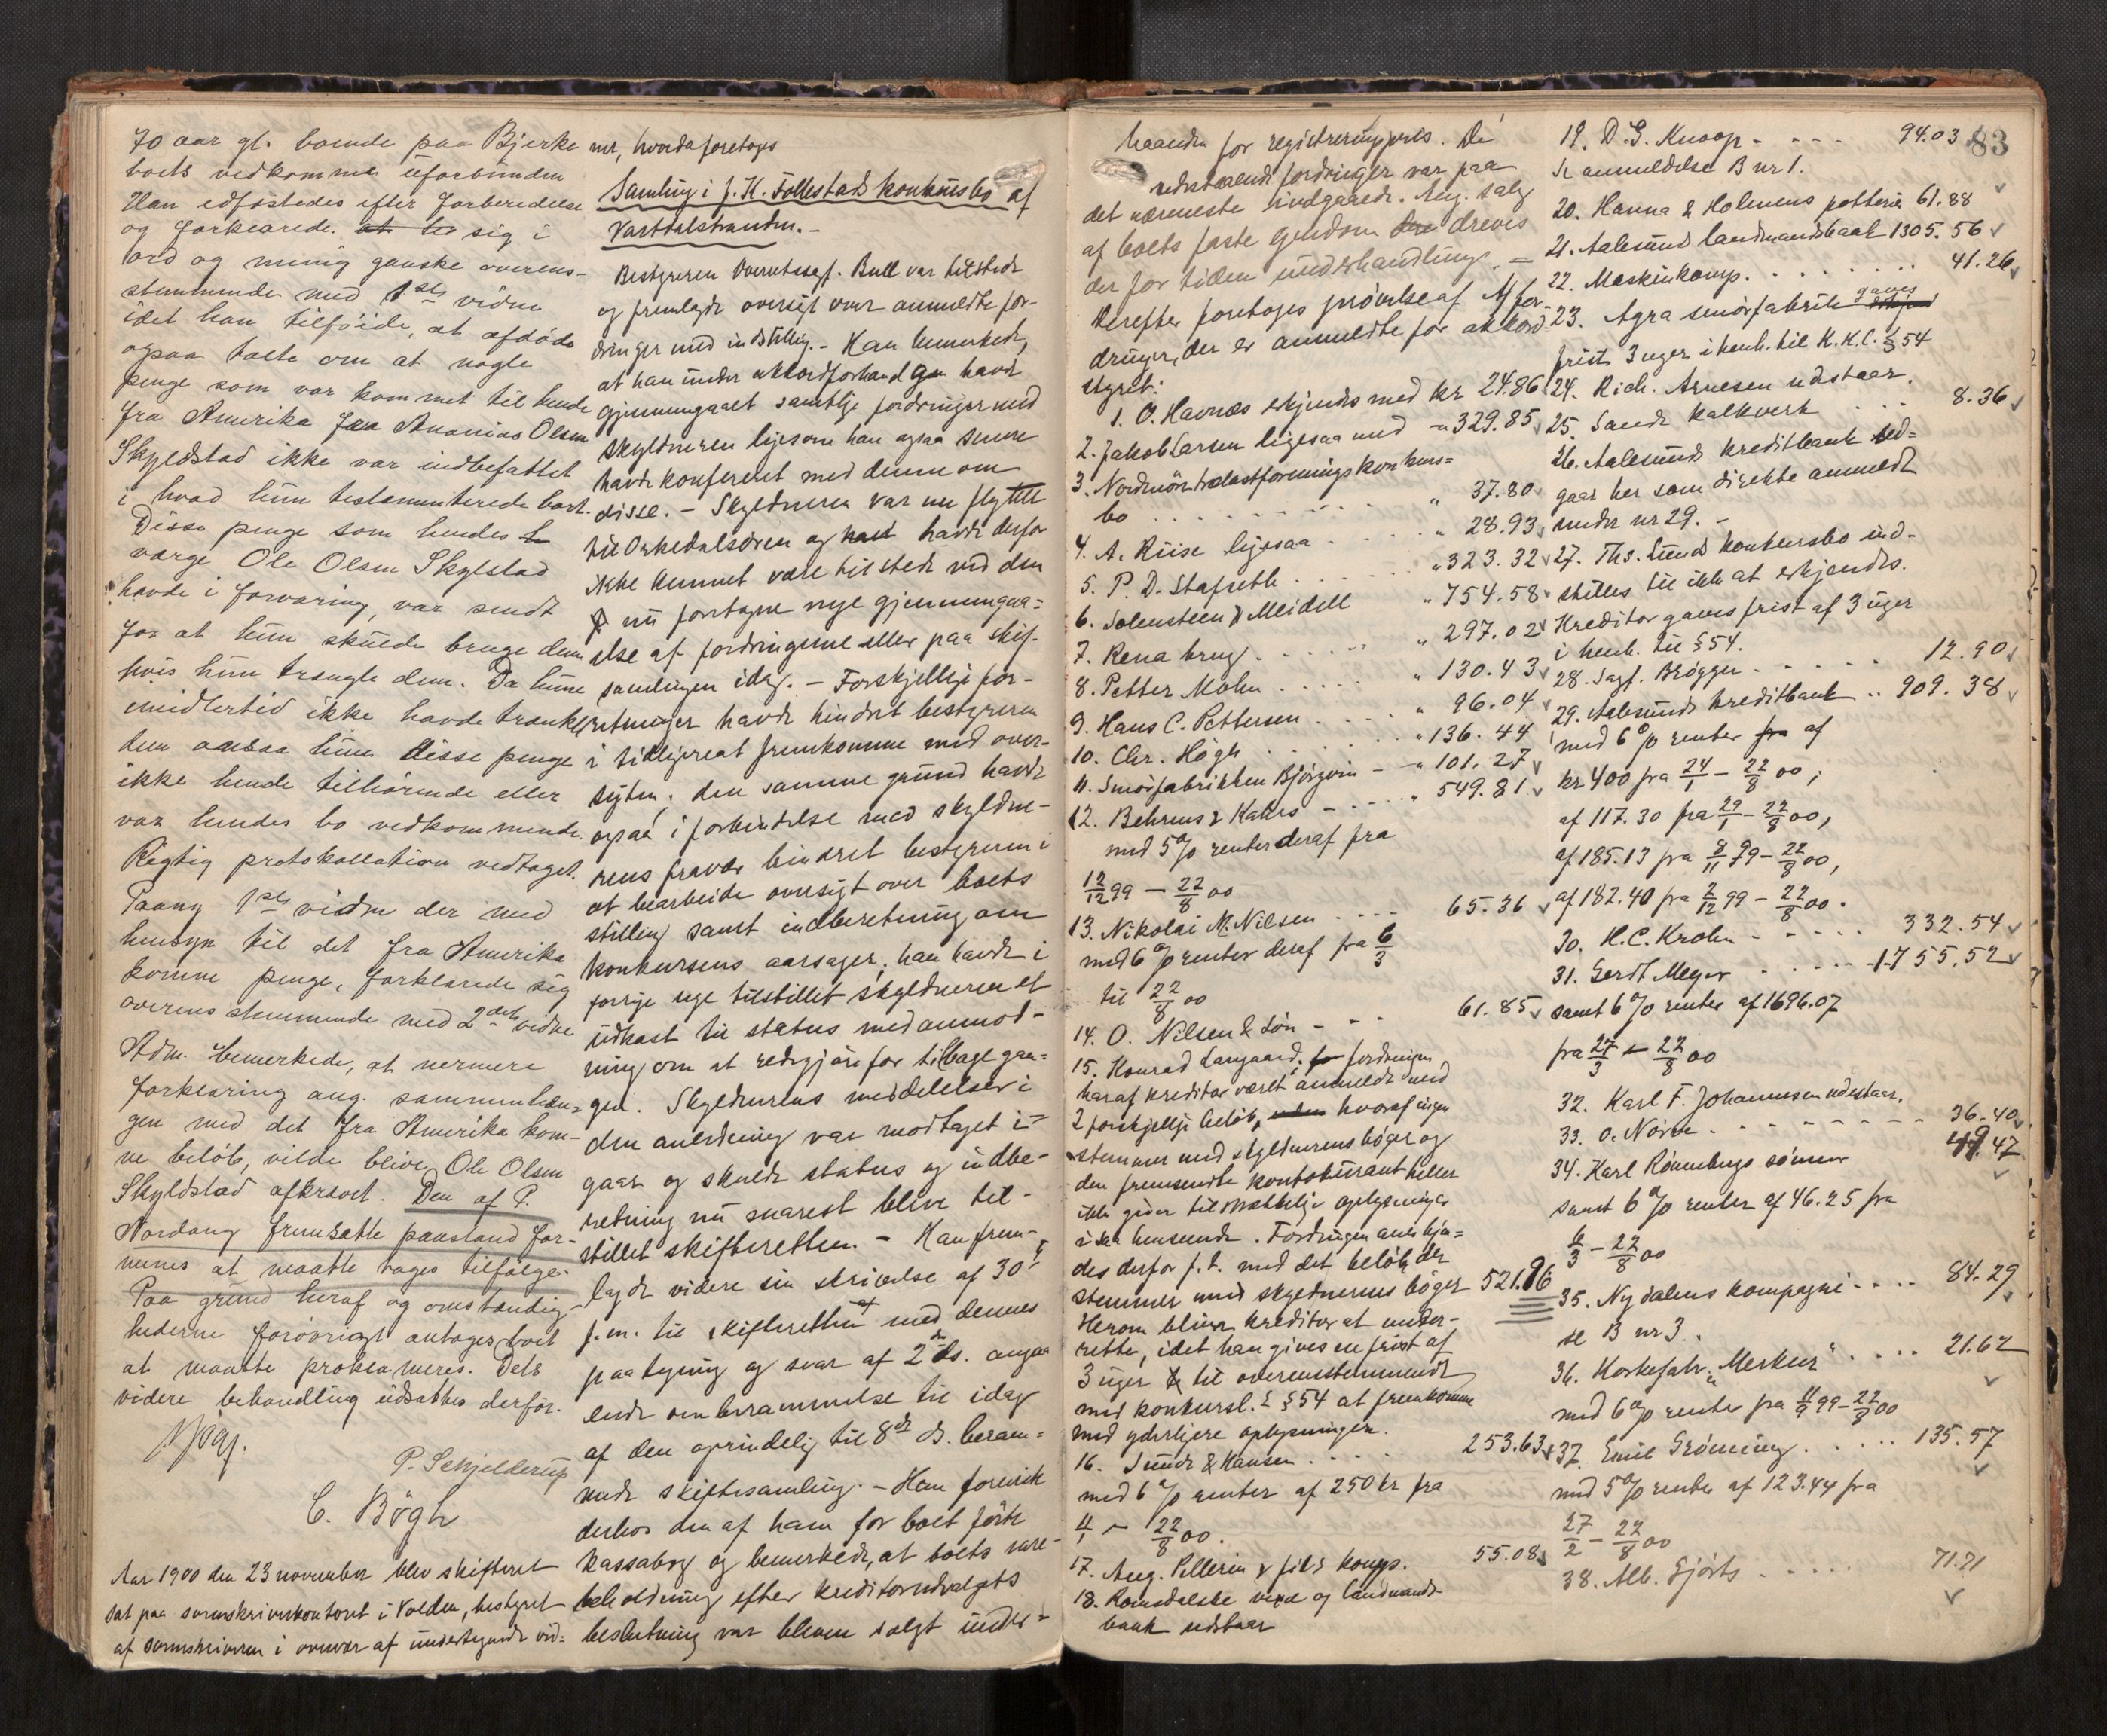 70 aar gl. boende paa Bjerke
boets vedkomme uforbunden
Han edfæstedes efter forberedelse
og forklarede at sig i
ord og mening ganske overens-
stemmende med 1ste vidne
idet han tilføiede, at afdøde
ogsaa talte om at nogle
penge som var kommet til hende
fra Amerika fra Ananias Olsen
Skyldstad ikke var indbefattet
i hvad hun testamenterede bort.
Disse penge som hendes
værge Ole Olsen Skylstad
havde i forvaring, var sendt
for at hun skulde bruge dem
hvis hun trængte dem. Da hun
imidlertid ikke havde trænkt
dem ansaa hun disse penge
ikke hende tilhørende eller
var hendes bo vedkommende.
Rigtig protokollation vedtaget.
Paany 1ste vidne der med
hensyn til det fra Amerika
komne penge, forklarede sig
overensstemmende med 2det vidne
Adm. bemerkede, at nærmere
forklaring ang. sammenhæn-
gen med det fra Amerika kom-
ne beløb, vilde blive Ole Olsen
Skyldstad afkrævet. Den af P.
Nordang fremsatte paastand for-
menes at maatte tages tilfølge.
Paa grund heraf og omstændig-
hederne forøvrigt antages boet
at maatte proklameres. Dets
videre behandling udsattes derfor.
P. Schjelderup
C. Bøgh
Aar 1900 den 23 november blev skifteret
sat paa sorenskriverkontoret i Volden, bestyret
af sorenskriveren i overvær af undertegnede vid-
ner, hvorda foretoges
Samling i J. K. Follestads konkursbo af
Vartdalstranden.-
Bestyreren Overretssagf. Bull var tilstede
og fremlagde oversigt over anmeldte for-
dringer med indstilling. - Han bemerkede,
at han under akkordforhandl havde
gjennemgaaet samtlige fordringer med
skyldneren ligesom han ogsaa senere
havde konfereret med denne om
disse. - Skyldneren var nu flyttet
til Orkedalsøren og havde derfor
ikke kunnet være tilstede ved den
nu foretagne nye gjennemgaa-
else af fordringerne eller paa skif.
samlingen idag. - Forskjellige for-
retninger havde hindret bestyreren
i tidligere at fremkomme med over-
sigten; den samme grund havde
ogsaa i forbindelse med skyldne-
rens fravær hindret bestyreren i
at bearbeide oversigt over boets
stilling samt indberetning om
konkursens aarsager; han havde i
forrige uge tilstillet skyldneren et
udkast til status med anmod-
ning om at redegjøre for tilbagegan-
gen. Skyldnerens meddelelser i
den anledning var modtaget i-
gaar og skulde status og indbe-
retning nu snarest blive til-
stillet skifteretten. - Han frem-
lagde videre sin skrivelse af 30/
f.m. til skifteretten med dennes
paategning og svar af 2 ds. angaa
ende omberammelse til idag
af den oprindelig til 8de ds. beram-
mede skiftesamling. - Han foreviste
derhos den af ham for boet førte
kassabog og bemerkede, at boets vare-
beholdning efter kreditorudvalgets
beslutning var bleven solgt under-
haanden for registreringspris. De
udestaaende fordringer var paa
det nærmeste indgaaede. Ang. salg
af boets faste eiendom dreves
der for tiden underhandling. -
Derefter foretoges prøvelse af for-
dringer, der er anmeldte for akkord-
styret:
1. O. Havnæs erkjendes med kr 24.86
2. Jakob Larsen ligesaa med - 329.85
3. Nordmør trælastforenings konkurs-
bo . . . . . " 37.80
4. A. Riise ligesaa . . . " 28.93
5. P. D. Stafseth . . . " 323.32
6. Solensteen & Meidell " 754.58
7. Rena brug . . . . " 297.02
8. Petter Mohn . . . . " 130.43
9. Hans C. Pettersen . . . " 96.04
10. Chr. Høgh . . . . " 136.44
11. Smørfabrikken Bjørgvin - " 101.27
12. Behrens & Kahrs - . . " 549.81
med 5 % renter deraf fra
12/12 99 - 22/8 00
13. Nikolai M. Nilsen . . . . 65.36
med 6 % renter deraf fra 6/3
til 22/8 00
14. O. Nilsen & Søn - - - 61.85
15. Konrad Langaard; fordringen
har af kreditor været anmeldt med
2 forskjellige beløb, hvoraf ingen
stemmer med skyldnerens bøger og
den fremsendte kontokurant heller
ikke giver tilstrækkelige oplysninger
i saa henseende. Fordringen anerkjen-
des derfor f.t. med det beløb, der
stemmer med skyldnerens bøger 521.96
Herom bliver kreditor at under-
rette, idet han gives en frist af
3 uger til overensstemmende
med konkursl.s § 54 at fremkomme
med yderligere oplysninger.
16. Sunde & Hansen . . . . 253.63
med 6 % renter af 250 kr fra
4/1 - 22/8 00.
17. Aug. Pellerin & fils komp. 55.08
18. Romsdalske vexel og landmands-
bank udstaar
19. D. G. Knoop - - - - 94.03
83
se anmeldelse B nr 1.
20. Hanna & Holmens potteri 61.88
21. Aalesunds landmandsbank 1305.56
22. Maskinkomp. . . . . . 41.26
23. Agra smørfabrik gaves
frist 3 uger i henh. til K.K.L. § 54
24. Rich. Arnesen udstaar.
25. Sande kalkverk . . . 8.36
26. Aalesunds kreditbank ud-
gaar her som direkte anmeldt
under nr 29. -
27. Ths. Lunds konkursbo ind-
stilles til ikke at erkjendes.
Kreditor gaves frist af 3 uger
i henh. til § 54.
28. Sagf. Brøgger - - - - 12.90
29. Aalesunds kreditbank . . 909.38
med 6 % renter fra af
kr 400 fra 24/1 - 22/8 00;
af 117.30 fra 29/1 - 22/8 00,
af 185.13 fra 8/11 99 - 22/8 00,
af 182.40 fra 2/12 99 - 22/8 00.
30. H. C. Krohn - - - - - 332.54
31. Gerdt Meyer . . . . . 1755.52
samt 6 % renter af 1696.07
fra 27/3 - 22/8 00
32. Karl F. Johannesen udestaar.
33. O. Nørve - - - - - - 36.40
34. Karl Rønnebergs sønner 49.47
samt 6 % renter af 46.25 fra
6/3 - 22/8 00
35. Nydalens kompagni . . . . 84.29
se B nr 3.
36. Korkefabr. "Merkur" . . . . 21.62
med 6 % renter fra 11/9 99 - 22/8 00
37. Emil Grønning . . . . . 135.57
med 5 % renter af 123.44 fra
27/2 - 22/8 00
38. Alb. Gjørts . . . . . 71.71